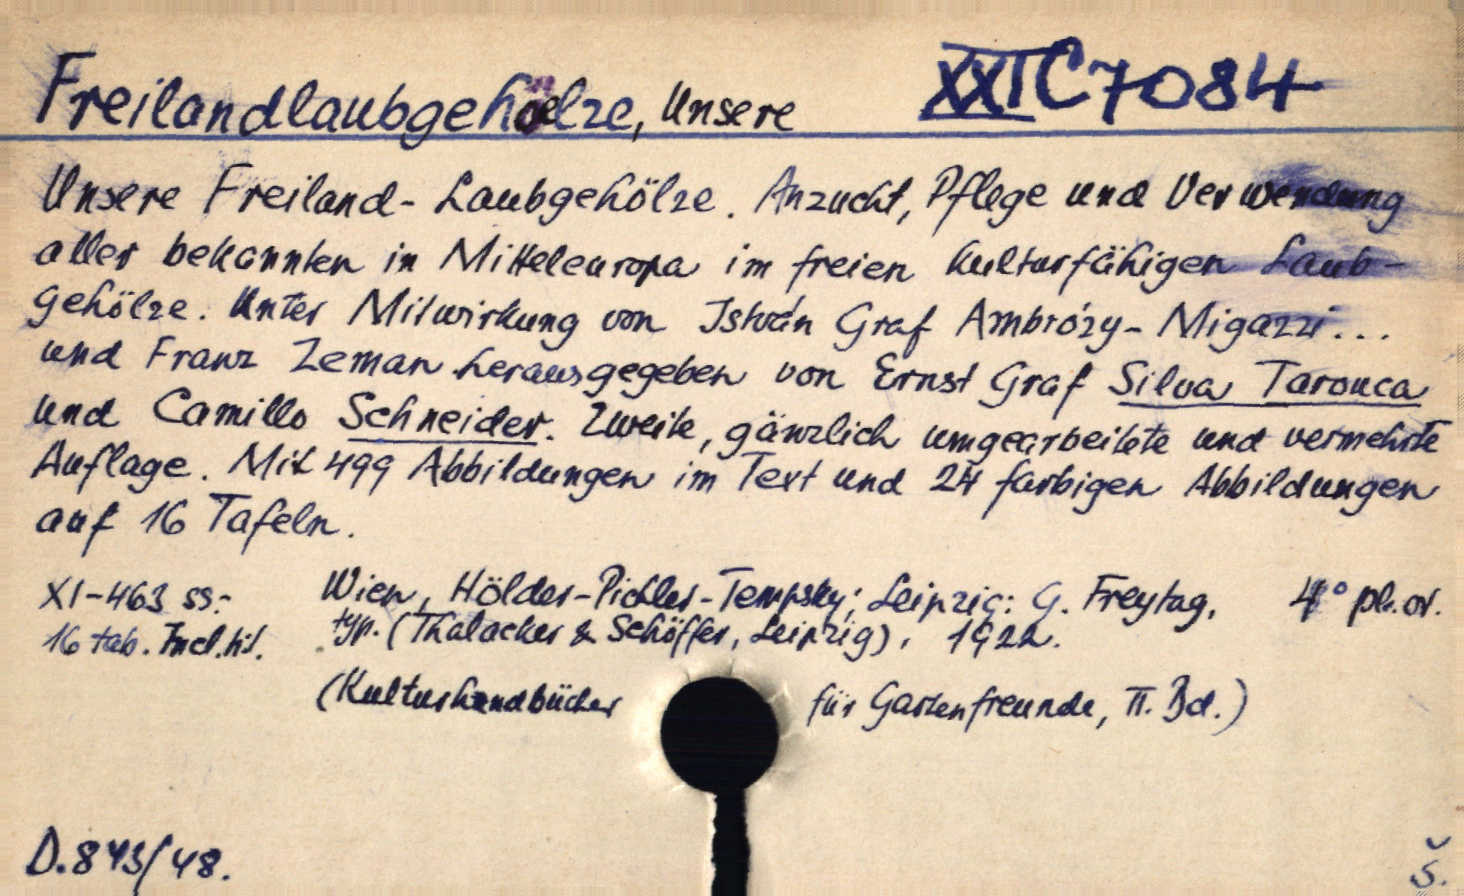 Freilandlaubgehoelze, Unsere XXII C 7084
Unsere Freiland-Laubgehölze. Anzucht, Pflege und Verwendung
aller bekannten in Mitteleuropa im freien kulturfähigen Laub-
gehölze. Unter Mitwirkung von István Graf Ambrózy-Migazzi...
und Franz Zeman herausgegeben von Ernst Graf Silva Tarouca
und Camillo Schneider. Zweite, gänzlich umgearbeitete und vermehrte
Auflage. Mit 499 Abbildungen im Text und 24 farbigen Abbildungen
auf 16 Tafeln.
XI-463 ss.- Wien, Hölder-Pichler-Tempsky; Leipzig: G. Freytag, 4° pl. or.
16 tab. Incl. tit. typ. (Thalacker & Schöffer, Leipzig), 1922.
(Kulturhandbücher für Gartenfreunde, II. Bd.)
D.843/48. Š.